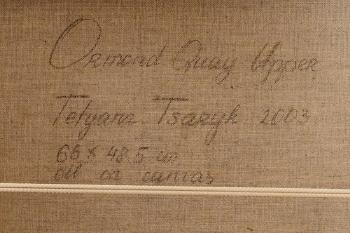 Ormond Quay Upper
Tetyana Tsaryk 2003
66 x 48.5 cm
oil on canvas